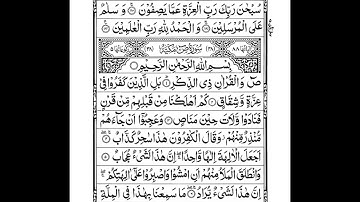 سُبْحٰنَ رَبِّكَ رَبِّ الْعِزَّةِ عَمَّا يَصِفُوْنَ ۚ وَ سَلٰمٌ
عَلَى الْمُرْسَلِيْنَ ۚ وَ الْحَمْدُ لِلّٰهِ رَبِّ الْعٰلَمِيْنَ
بِسْمِ اللّٰهِ الرَّحْمٰنِ الرَّحِيْمِ
صٓ وَ الْقُرْاٰنِ ذِی الذِّكْرِ ؕ بَلِ الَّذِيْنَ كَفَرُوْا فِیْ
عِزَّةٍ وَّ شِقَاقٍ كَمْ اَهْلَكْنَا مِنْ قَبْلِهِمْ مِّنْ قَرْنٍ
فَنَادَوْا وَّلَاتَ حِيْنَ مَنَاصٍ وَ عَجِبُوْۤا اَنْ جَآءَهُمْ
مُّنْذِرٌ مِّنْهُمْ ؗ وَ قَالَ الْكٰفِرُوْنَ هٰذَا سٰحِرٌ كَذَّابٌ
اَجَعَلَ الْاٰلِهَةَ اِلٰهًا وَّاحِدًا ۖۚ اِنَّ هٰذَا لَشَیْءٌ عُجَابٌ
وَ انْطَلَقَ الْمَلَاُ مِنْهُمْ اَنِ امْشُوْا وَ اصْبِرُوْا عَلٰۤی اٰلِهَتِكُمْ ۖۚ
اِنَّ هٰذَا لَشَیْءٌ يُّرَادُ ۖۚ مَا سَمِعْنَا بِهٰذَا فِی الْمِلَّةِ